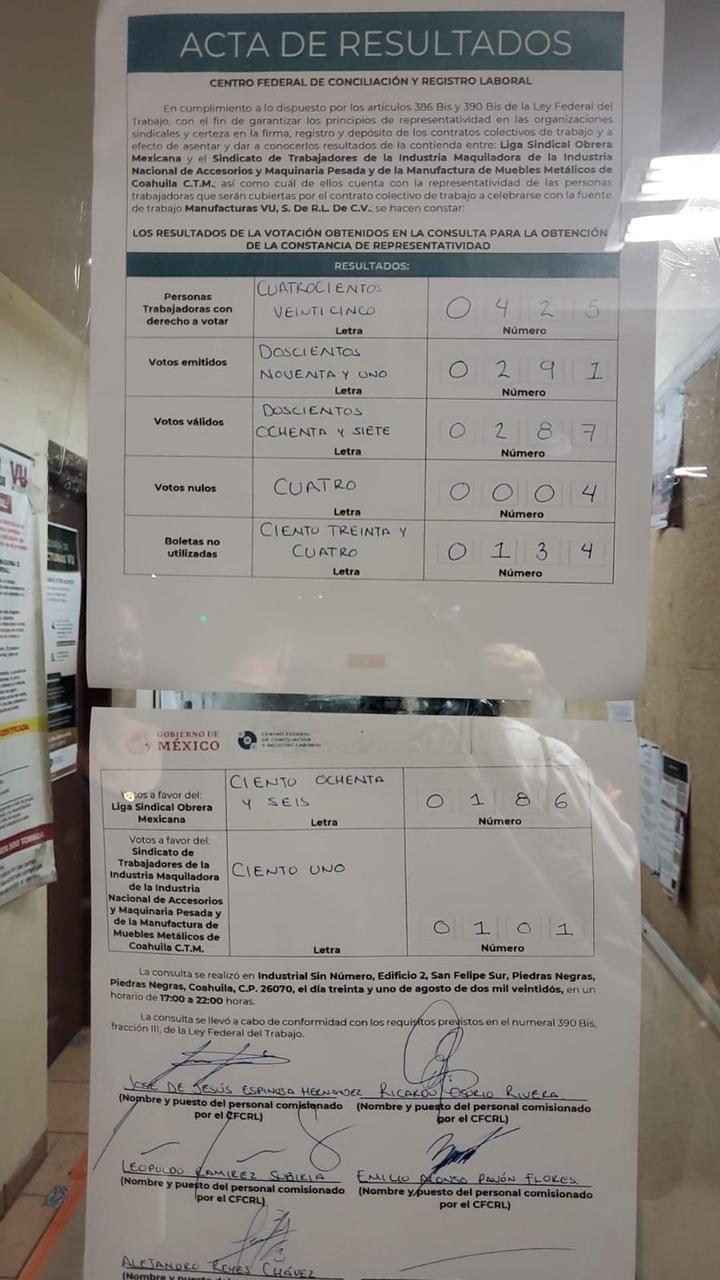 ACTA DE RESULTADOS
CENTRO FEDERAL DE CONCILIACIÓN Y REGISTRO LABORAL
En cumplimiento a lo dispuesto por los artículos 386 Bis y 390 Bis de la Ley Federal del
Trabajo, con el fin de garantizar los principios de representatividad en las organizaciones
sindicales y certeza en la firma, registro y depósito de los contratos colectivos de trabajo y a
efecto de asentar y dar a conocerlos resultados de la contienda entre: Liga Sindical Obrera
Mexicana y el Sindicato de Trabajadores de la Industria Maquiladora de la Industria
Nacional de Accesorios y Maquinaria Pesada y de la Manufactura de Muebles Metálicos de
Coahuila C.T.M.; así como cuál de ellos cuenta con la representatividad de las personas
trabajadoras que serán cubiertas por el contrato colectivo de trabajo a celebrarse con la fuente
de trabajo Manufacturas VU, S. De R.L. De C.V.; se hacen constar:
LOS RESULTADOS DE LA VOTACIÓN OBTENIDOS EN LA CONSULTA PARA LA OBTENCIÓN
DE LA CONSTANCIA DE REPRESENTATIVIDAD
RESULTADOS:
Personas
Trabajadoras con
derecho a votar
CUATROCIENTOS
VEINTICINCO
Letra
0 4 2 5
Número
Votos emitidos
DOSCIENTOS
NOVENTA Y UNO
Letra
0 2 9 1
Número
Votos válidos
DOSCIENTOS
OCHENTA Y SIETE
Letra
0 2 8 7
Número
Votos nulos
CUATRO
Letra
0 0 0 4
Número
Boletas no
utilizadas
CIENTO TREINTA Y
CUATRO
Letra
0 1 3 4
Número
GOBIERNO DE
MÉXICO
CENTRO FEDERAL
DE CONCILIACIÓN
Y REGISTRO LABORAL
Votos a favor del:
Liga Sindical Obrera
Mexicana
CIENTO OCHENTA
Y SEIS
Letra
0 1 8 6
Número
Votos a favor del:
Sindicato de
Trabajadores de la
Industria Maquiladora
de la Industria
Nacional de Accesorios
y Maquinaria Pesada y
de la Manufactura de
Muebles Metálicos de
Coahuila C.T.M.
CIENTO UNO
Letra
0 1 0 1
Número
La consulta se realizó en Industrial Sin Número, Edificio 2, San Felipe Sur, Piedras Negras,
Piedras Negras, Coahuila, C.P. 26070, el día treinta y uno de agosto de dos mil veintidós, en un
horario de 17:00 a 22:00 horas.
La consulta se llevó a cabo de conformidad con los requisitos previstos en el numeral 390 Bis,
fracción III, de la Ley Federal del Trabajo.
JOSE DE JESÚS ESPINOSA HERNANDEZ
(Nombre y puesto del personal comisionado
por el CFCRL)
RICARDO OSORIO RIVERA
(Nombre y puesto del personal comisionado
por el CFCRL)
LEOPOLDO RAMIREZ SUBIRIA
(Nombre y puesto del personal comisionado
por el CFCRL)
EMILIO ALONSO PAVÓN FLORES
(Nombre y puesto del personal comisionado
por el CFCRL)
ALEJANDRO REYES CHÁVEZ
(Nombre y puesto del personal comisionado
VU